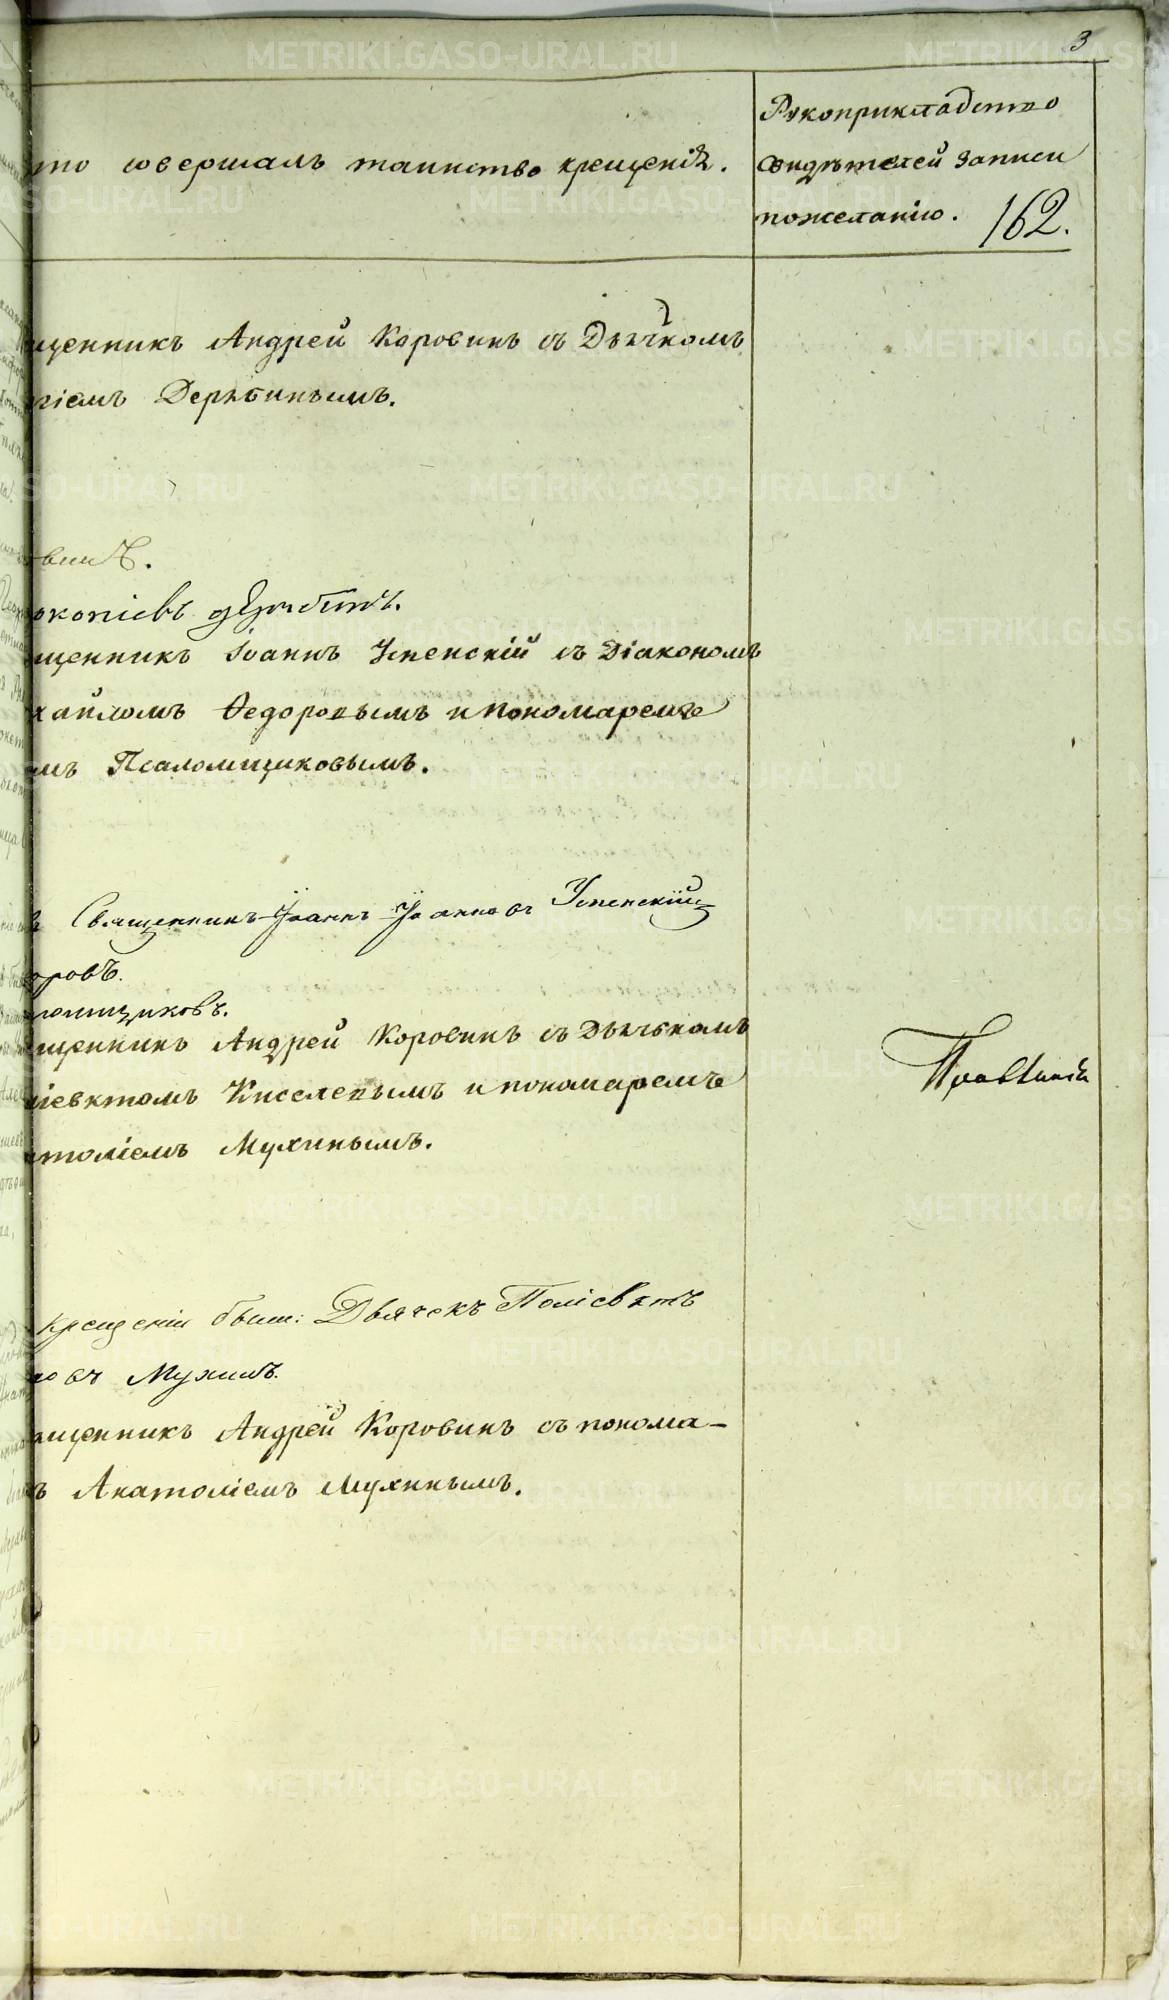 3
то совершалъ таинство крещенія.
Рукоприкладство
свидѣтелей записи
по желанію. 162.
щенникъ Андрей Коровинъ съ Дьячкомъ
гіемъ Дерябинымъ.
винъ.
окопіевъ Дерябинъ.
щенникъ Іоаннъ Успенскій съ Діакономъ
хаиломъ Ѳедоровымъ и пономаремъ
мъ Псаломщиковымъ.
Священникъ Іоаннъ Іоанновъ Успенскій
оровъ.
ломщиковъ.
щенникъ Андрей Коровинъ съ Дьячькомъ
іевктомъ Киселевымъ и пономаремъ
толіемъ Мухинымъ.
крещеніи были: Дьячекъ Поліевктъ
овъ Мухинъ.
щенникъ Андрей Коровинъ съ понома-
ъ Анатоліемъ Мухинымъ.
METRIKI.GASO-URAL.RU